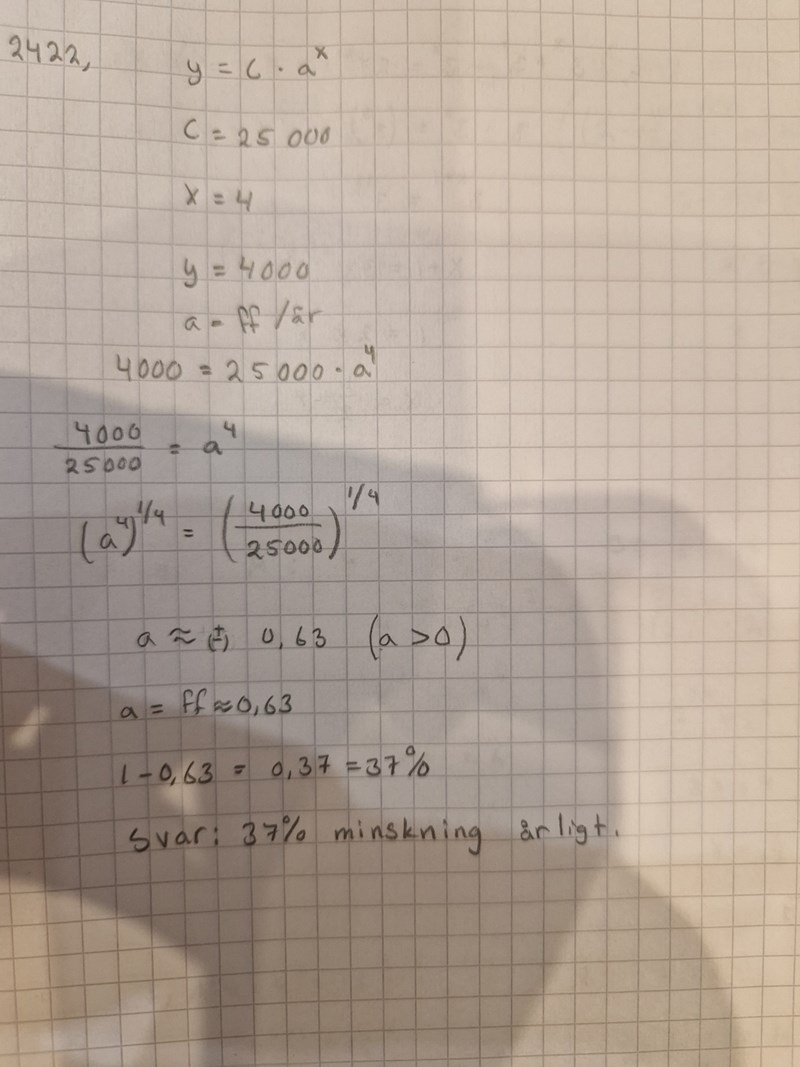 2422,
y = C · a^x
C = 25 000
x = 4
y = 4000
a = ff /år
4000 = 25000 · a^4
4000/25000 = a^4
(a^4)^1/4 = (4000/25000)^1/4
a ≈ (±) 0,63 (a > 0)
a = ff ≈ 0,63
1 - 0,63 = 0,37 = 37%
Svar: 37% minskning årligt.